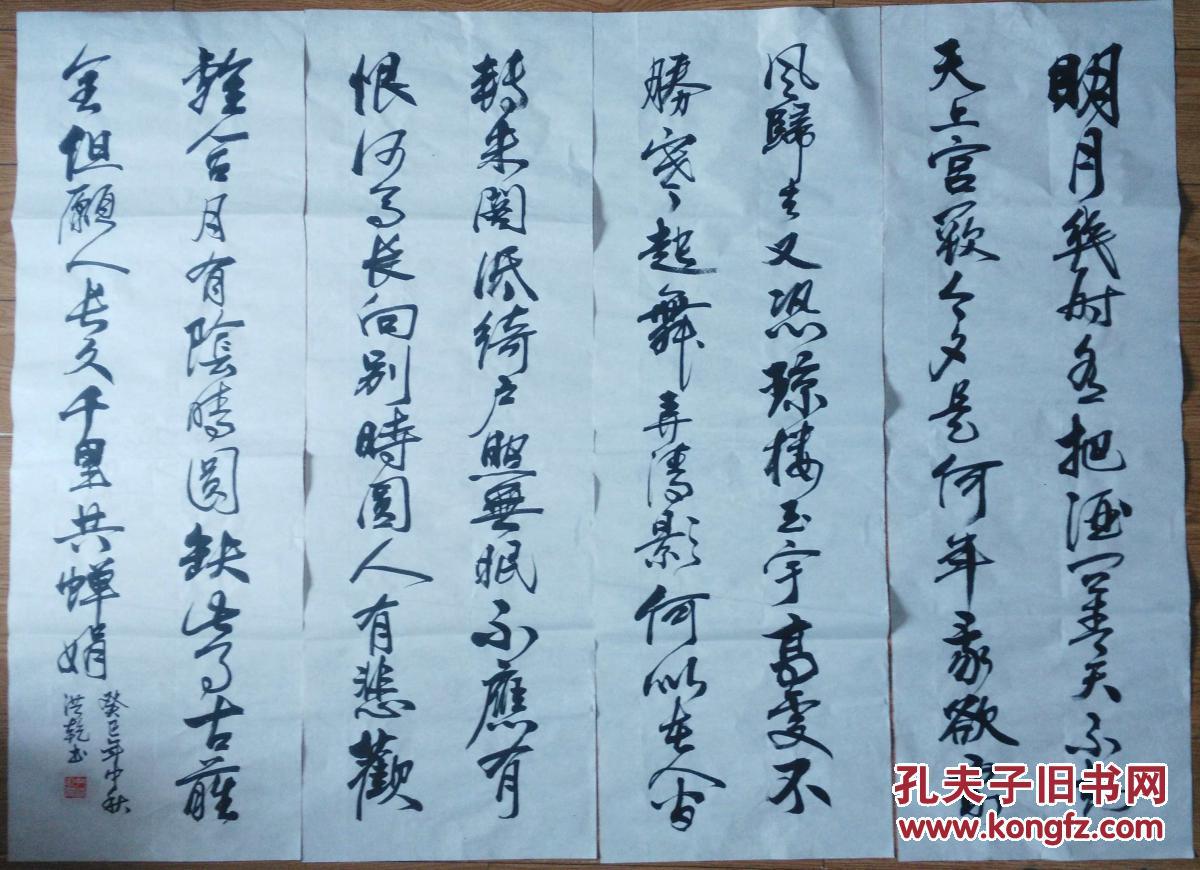 明月幾时有把酒问青天不知
天上宫闕今夕是何年我欲乘
风歸去又恐琼楼玉宇高處不
勝寒起舞弄清影何似在人间
转朱阁低绮户照無眠不應有
恨何事长向别時圆人有悲歡
離合月有陰晴圆缺此事古難
全但願人长久千里共蝉娟
癸巳年中秋
洪乾书
孔夫子旧书网
www.kongfz.com